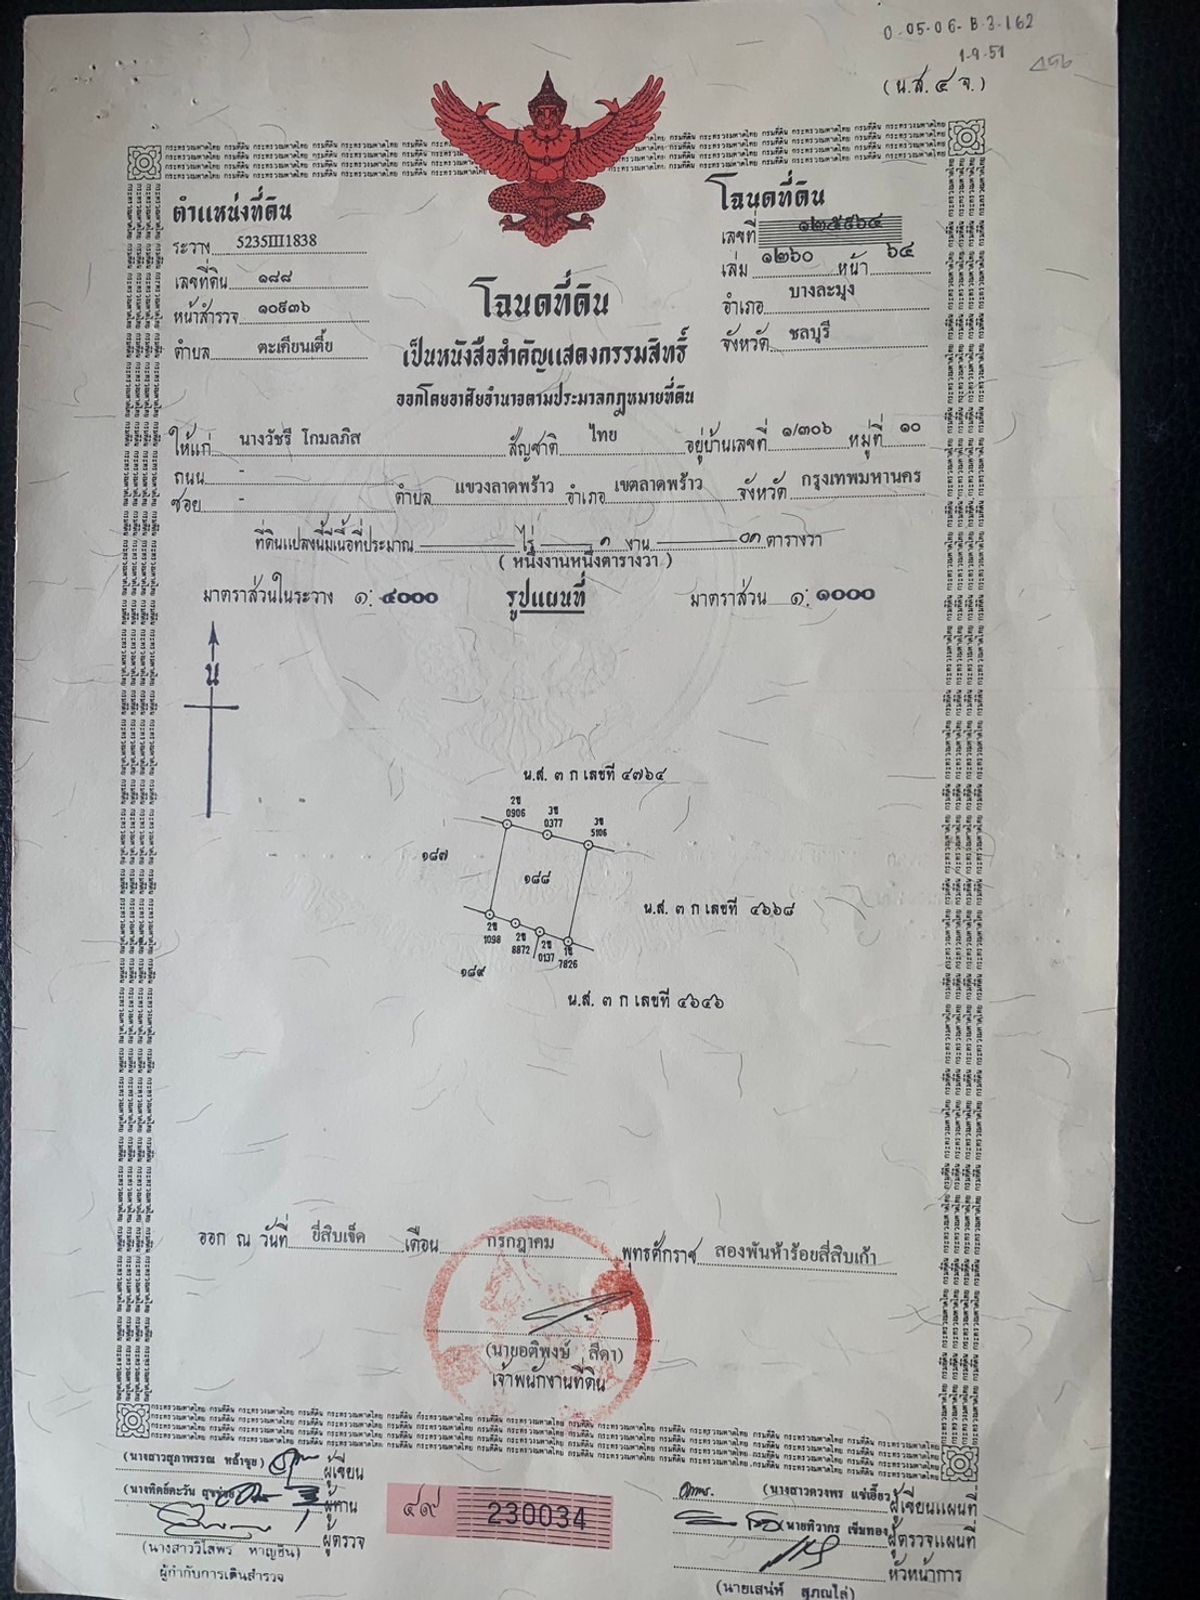 0-05-06-B-3-162
1-9-51
(น.ส. ๔ จ.)
ตำแหน่งที่ดิน
ระวาง 5235III1838
เลขที่ดิน ๑๘๘
หน้าสำรวจ ๑๐๙๓๖
ตำบล ตะเคียนเตี้ย
โฉนดที่ดิน
เลขที่ ๑๒๕๕๖๔
เล่ม ๑๒๖๐ หน้า ๖๔
อำเภอ บางละมุง
จังหวัด ชลบุรี
โฉนดที่ดิน
เป็นหนังสือสำคัญแสดงกรรมสิทธิ์
ออกโดยอาศัยอำนาจตามประมวลกฎหมายที่ดิน
ให้แก่ นางวัชรี โกมลภิส สัญชาติ ไทย อยู่บ้านเลขที่ ๑/๓๐๖ หมู่ที่ ๑๐
ถนน -
ซอย - ตำบล แขวงลาดพร้าว อำเภอ เขตลาดพร้าว จังหวัด กรุงเทพมหานคร
ที่ดินแปลงนี้มีเนื้อที่ประมาณ ไร่ ๑ งาน ๐๑ ตารางวา
( หนึ่งงานหนึ่งตารางวา )
มาตราส่วนในระวาง ๑: ๔๐๐๐ รูปแผนที่ มาตราส่วน ๑: ๑๐๐๐
น
น.ส. ๓ ก เลขที่ ๔๗๖๔
2ข 0906
3ข 0377
3ข 5106
๑๘๗
๑๘๘
น.ส. ๓ ก เลขที่ ๔๖๖๘
2ข 1098
2ข 8872
2ข 0137
1ข 7826
๑๘๙
น.ส. ๓ ก เลขที่ ๔๖๔๖
ออก ณ วันที่ ยี่สิบเจ็ด เดือน กรกฎาคม พุทธศักราช สองพันห้าร้อยสี่สิบเก้า
(นายอติพงษ์ สีดา)
เจ้าพนักงานที่ดิน
(นางสาวสุภาพรรณ หล้าขุย) ผู้เขียน
(นางทิตย์ตะวัน ผู้ทาน
ผู้ตรวจ
(นางสาววิไลพร หาญยืน)
ผู้กำกับการเดินสำรวจ
๔๙ 230034
(นางสาวดวงพร แซ่เอี้ยว) ผู้เขียนแผนที่
(นายทิวากร เข็มทอง) ผู้ตรวจแผนที่
หัวหน้าการ
(นายเสน่ห์ สุภณไล่)